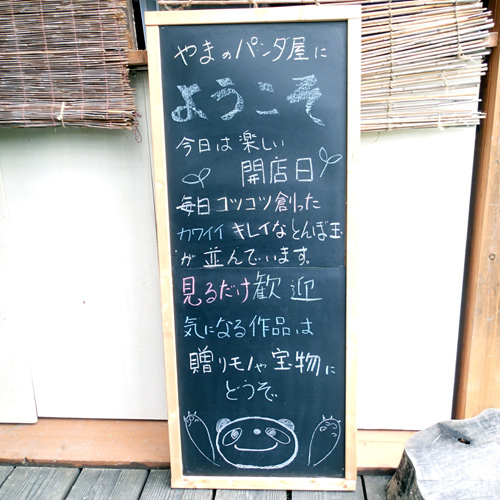 やまのパンダ屋に
ようこそ
今日は楽しい
開店日
毎日コツコツ創った
カワイイ キレイなとんぼ玉
が並んでいます。
見るだけ歓迎
気になる作品は
贈りモノや宝物に
どうぞ